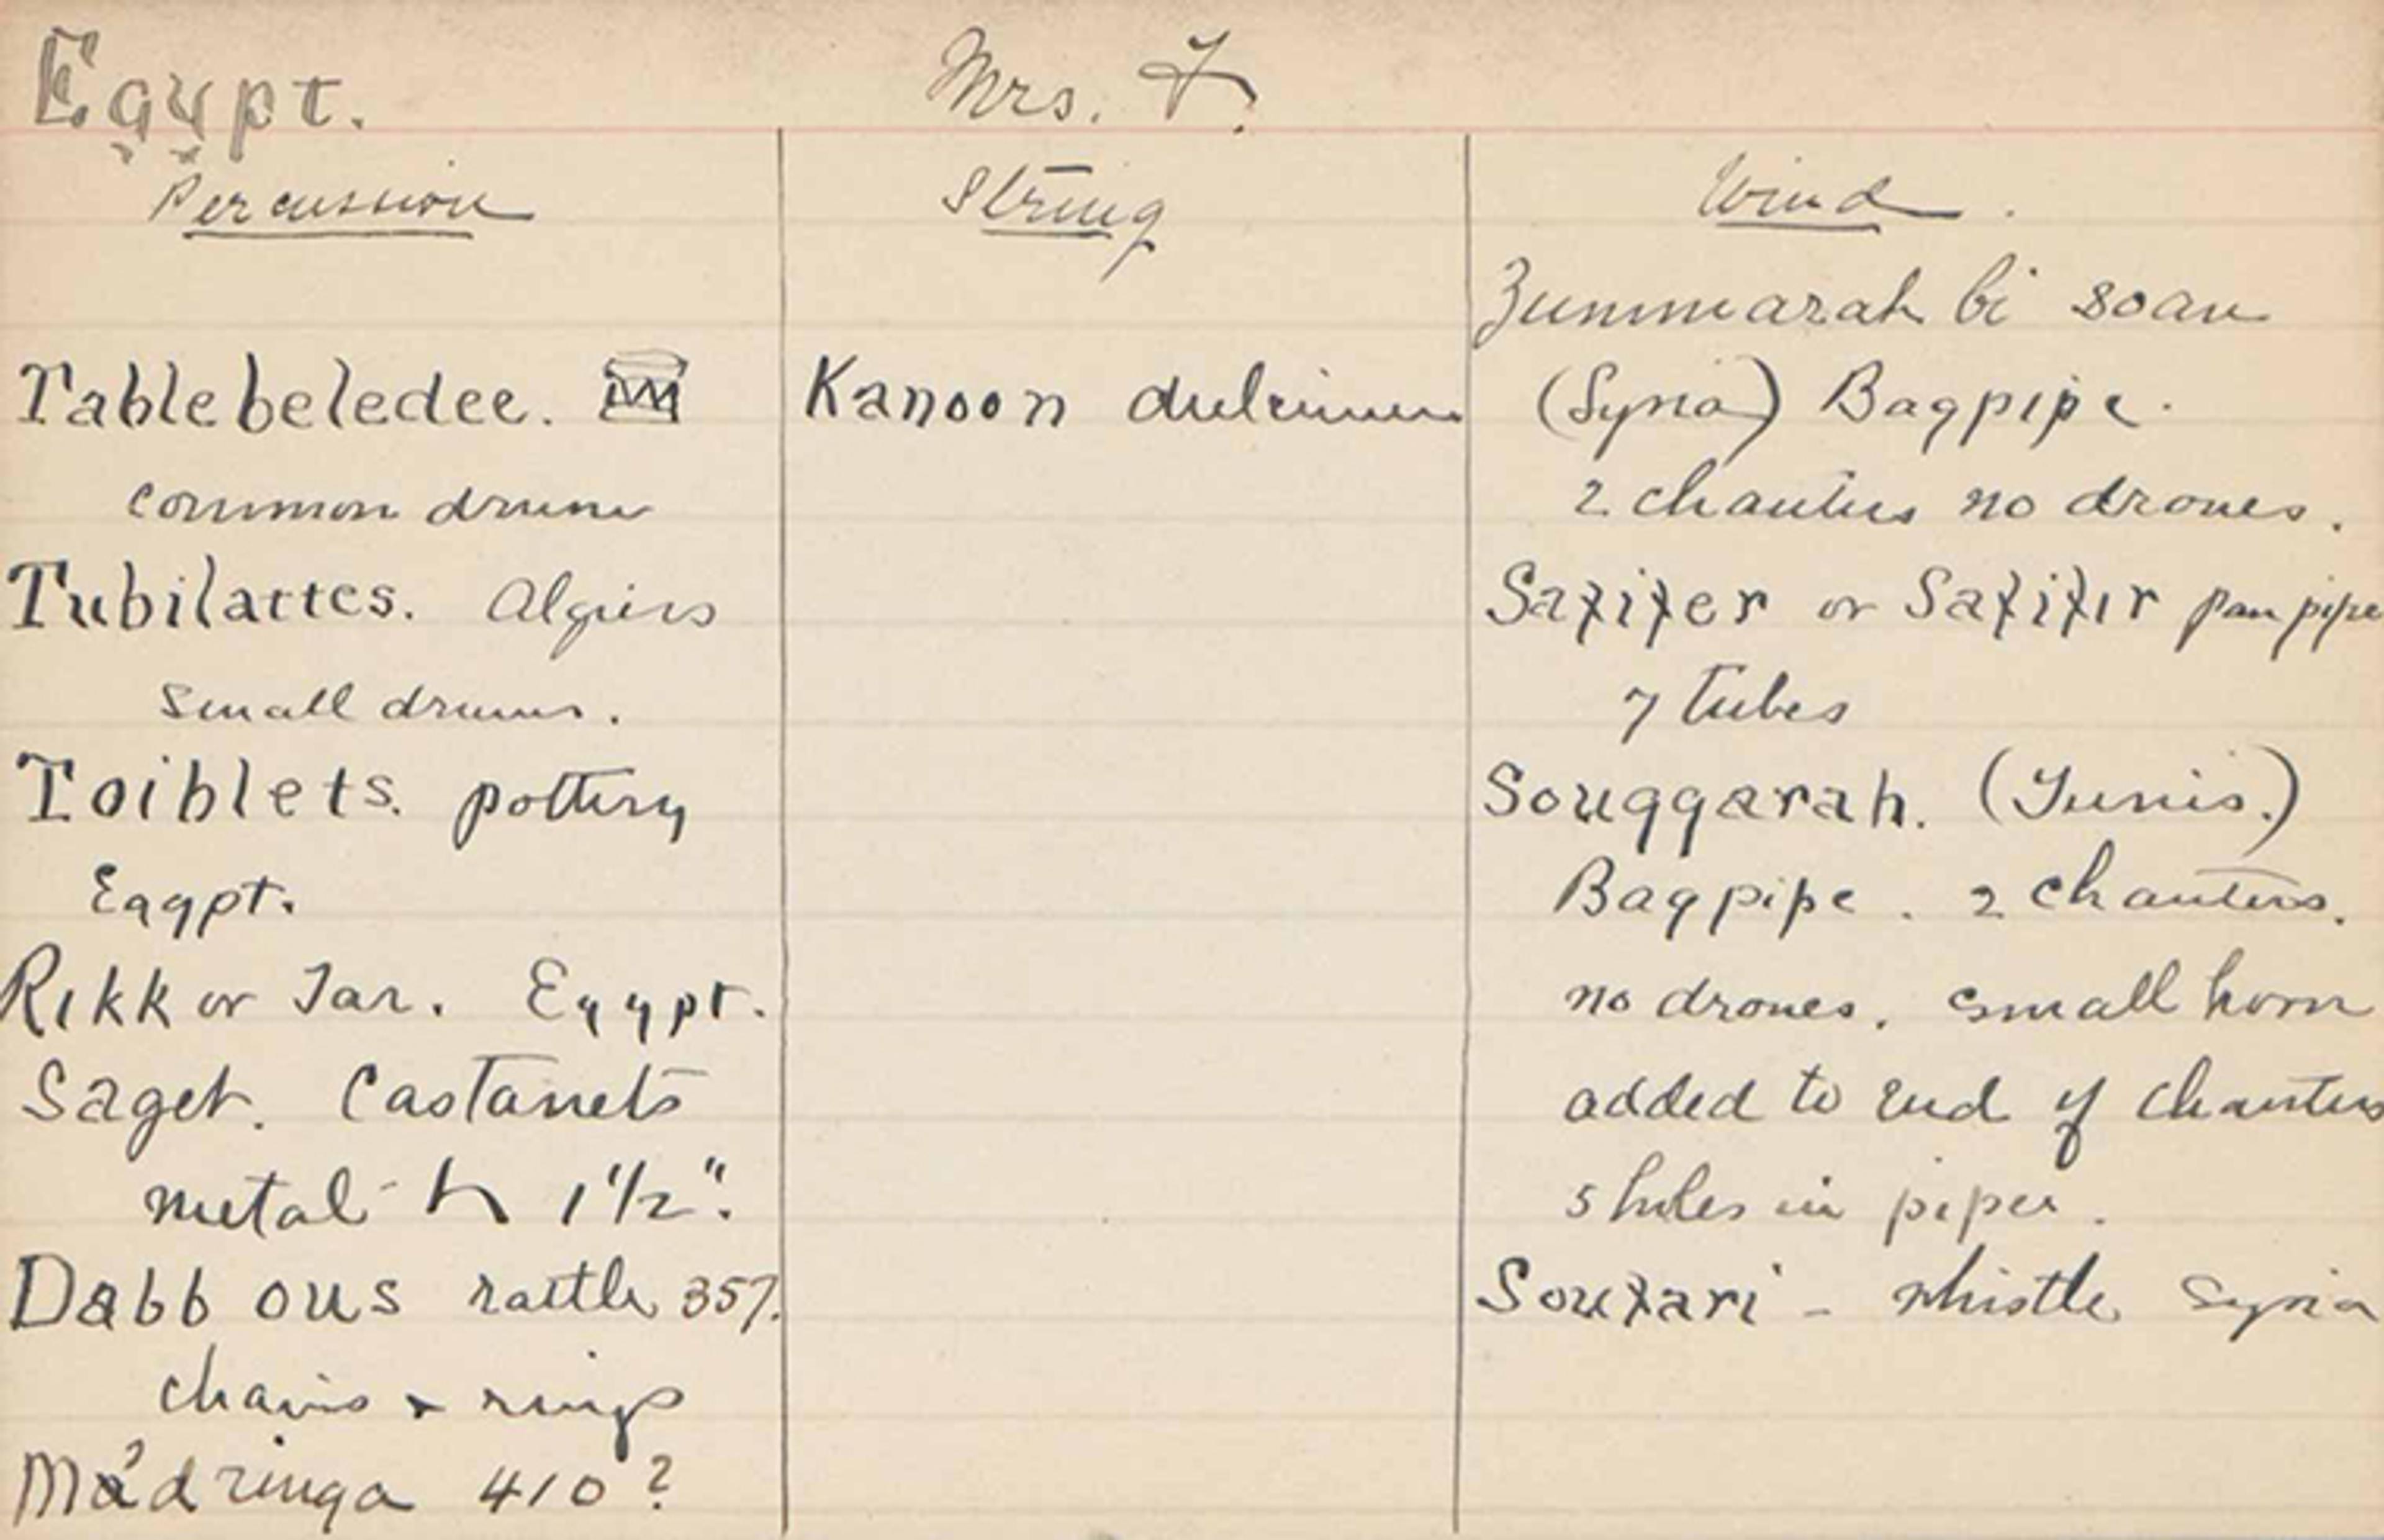 Egypt. Mrs. F.
Percussion
Table beledee.
common drum
Tubilattes. Algiers
small drums.
Toiblets. pottery
Egypt.
Rikk or Tar. Egypt.
Saget. Castanets
metal 1 1/2".
Dabb ous rattle 357.
chains & rings
Madringa 410?
String
Kanoon dulcimer
Wind.
Zummarah bi soan
(Syria) Bagpipe.
2 chanters no drones.
Safifer or Safifir pan pipe
7 tubes
Souggarah. (Tunis.)
Bagpipe. 2 chanters.
no drones. small horn
added to end of chanters
5 holes in pipes.
Soufari - whistle Syria